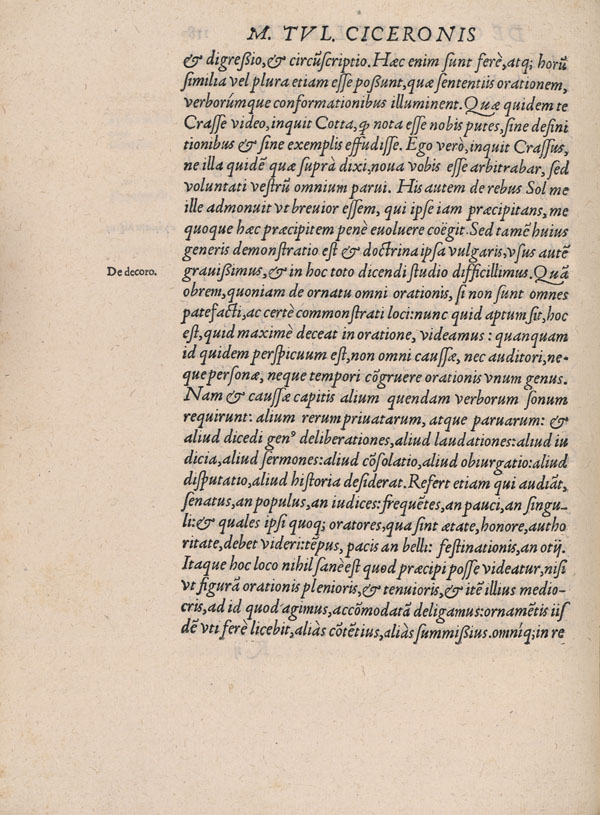 M. TVL. CICERONIS
& digreßio, & circũscriptio. Hæc enim sunt ferè, atq; horũ
similia vel plura etiam esse poßunt, quæ sententiis orationem,
verborúmque conformationibus illuminent. Quæ quidem te
Crasse video, inquit Cotta, ꝙ nota esse nobis putes, sine defini
tionibus & sine exemplis effudisse. Ego verò, inquit Crassus,
ne illa quidẽ quæ suprà dixi, noua vobis esse arbitrabar, sed
voluntati vestrũ omnium parui. His autem de rebus Sol me
ille admonuit vt breuior essem, qui ipse iam præcipitans, me
quoque hæc præcipitem penè euoluere coëgit. Sed tamẽ huius
generis demonstratio est & doctrina ipsa vulgaris, vsus autẽ
De decoro.
grauißimus, & in hoc toto dicendi studio difficillimus. Quã
obrem, quoniam de ornatu omni orationis, si non sunt omnes
patefacti, ac certè commonstrati loci: nunc quid aptum sit, hoc
est, quid maximè deceat in oratione, videamus: quanquam
id quidem perspicuum est, non omni caussæ, nec auditori, ne-
que personæ, neque tempori cõgruere orationis vnum genus.
Nam & caussæ capitis alium quendam verborum sonum
requirunt: alium rerum priuatarum, atque paruarum: &
aliud dicedi genꝰ deliberationes, aliud laudationes: aliud iu
dicia, aliud sermones: aliud cõsolatio, aliud obiurgatio: aliud
disputatio, aliud historia desiderat. Refert etiam qui audiãt,
senatus, an populus, an iudices: frequẽtes, an pauci, an singu-
li: & quales ipsi quoq; oratores, qua sint ætate, honore, autho
ritate, debet videri: tẽpus, pacis an belli: festinationis, an otij.
Itaque hoc loco nihil sanè est quod præcipi posse videatur, nisi
vt figurã orationis plenioris, & tenuioris, & itẽ illius medio-
cris, ad id quod agimus, accõmodatã deligamus: ornamẽtis iis
dẽ vti ferè licebit, aliàs cõtẽtius, aliàs summißius. omníq; in re